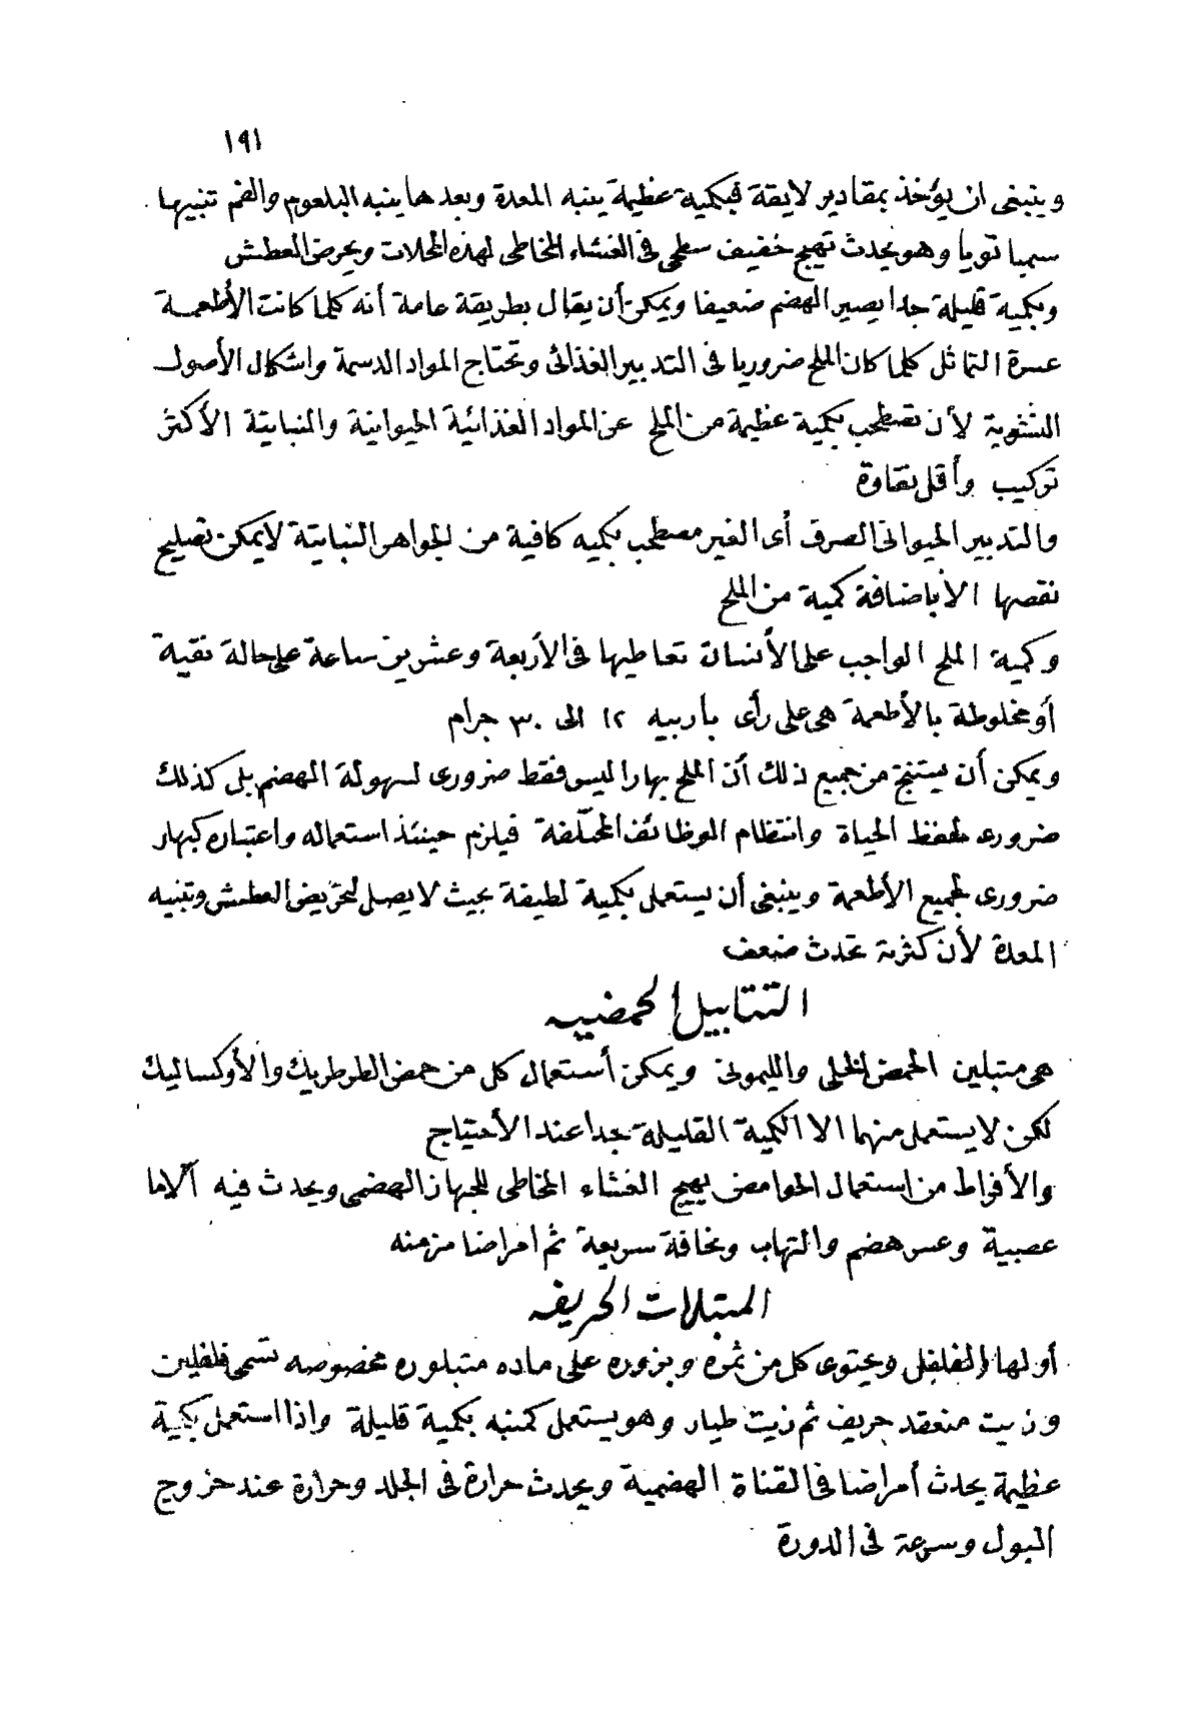 ١٩١
وينبغى ان يؤخذ بمقادير لايقة فبكمية عظيمة ينبه المعدة وبعدها ينبه البلعوم والفم تنبيها
سمبا تويا وهو يحدث تهيج خفيف سطحى فى الغشاء المخاطى لهذه المحلات ويحرض العطش
وبكمية قليلة جدا يصير الهضم ضعيفا ويمكن أن يقال بطريقة عامة أنه كلما كانت الأطعمة
عسرة التماثل كلما كان الملح ضروريا فى التدبير الغذائى وتحتاج المواد الدسمة واشكال الأصول
النشوية لأن تصطحب بكمية عظيمة من الملح عن المواد الغذائية الحيوانية والنباتية الأكثر
تركيب وأقل نقاوة
والتدبير الحيوانى الصرف أى الغير مصطحب بكميه كافية من الجواهر النباتية لايمكن تصليح
نقصها الا باضافة كمية من الملح
وكمية الملح الواجب على الأنسان تعاطيها فى الأربعة وعشرين ساعة على حالة نقية
أو مخلوطة بالأطعمة هى على رأى باربيه ١٢ الى ٣٠ جرام
ويمكن أن يستنتج من جميع ذلك أن الملح بهارا ليس فقط ضرورى لسهولة الهضم بل كذلك
ضرورى لحفظ الحياة وانتظام الوظائف المختلفة فيلزم حينئذ استعماله واعتباره كبهار
ضرورى لجميع الأطعمة وينبغى أن يستعمل بكمية لطيفة بحيث لا يصل لتحريض العطش وتنبيه
المعدة لأن كثرته تحدث ضعف
التتابيل الحمضيه
هى متبلين الحمض الخلى والليمونى ويمكن أستعمال كل من حمض الطرطريك والأوكساليك
لكن لا يستعمل منهما الا الكمية القليلة جدا عند الأحتياج
والأفراط من استعمال الحوامض يهيج الغشاء المخاطى للجهاز الهضمى ويحدث فيه آلاما
عصبية وعسر هضم والتهاب ونحافة سريعة ثم امراضا مزمنه
المتبلات الحريفه
أولها الفلفل ويحتوى كل من ثمره وبزوره على ماده متبلوره مخصوصه تسمى فلفلين
وزيت منعقد حريف ثم زيت طيار وهو يستعمل كمنبه بكمية قليلة واذا استعمل بكمية
عظيمة يحدث أمراضا فى القناة الهضمية ويحدث حرارة فى الجلد وحرارة عند خروج
البول وسرعة فى الدورة